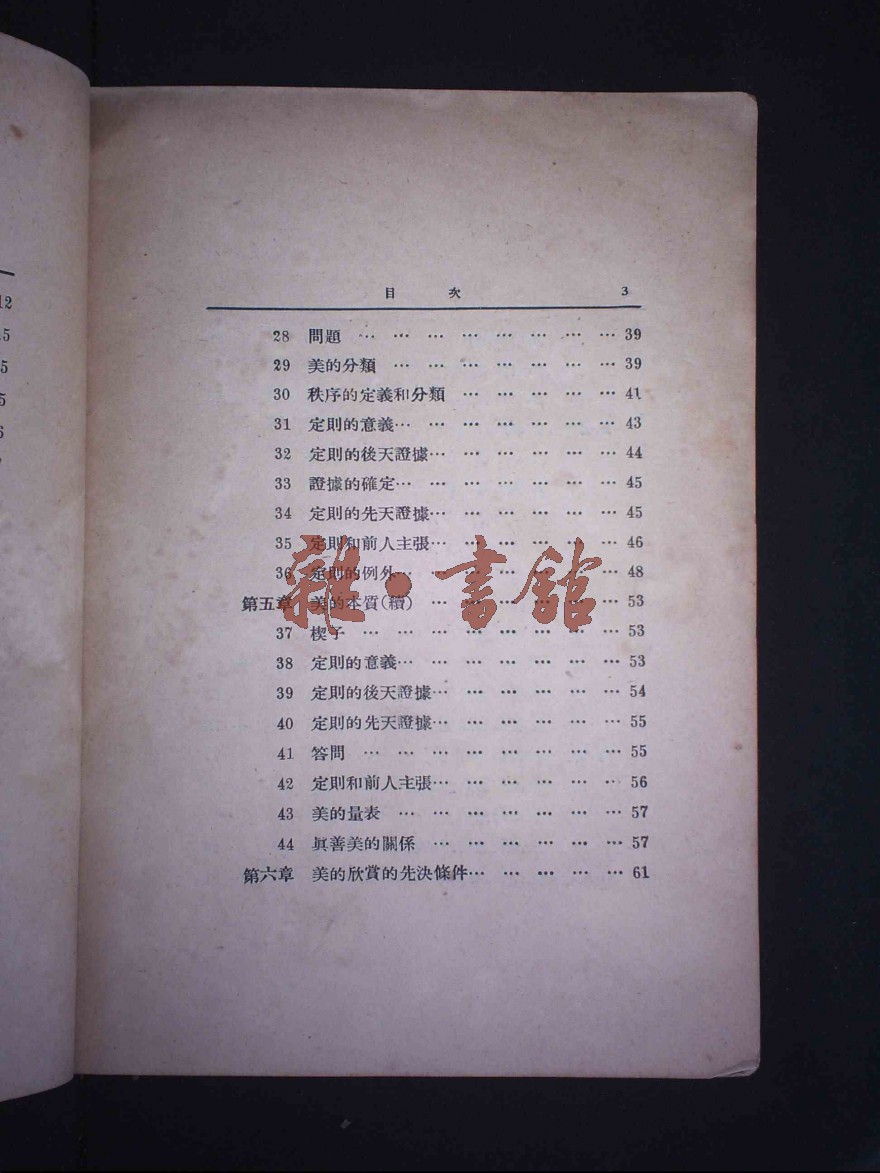 12
5
5
5
6
目 次 3
28 問題 … … … … … … … … 39
29 美的分類 … … … … … … … 39
30 秩序的定義和分類 … … … … … 41
31 定則的意義… … … … … … … 43
32 定則的後天證據… … … … … … 44
33 證據的確定… … … … … … … 45
34 定則的先天證據… … … … … … 45
35 定則和前人主張… … … … … … 46
36 定則的例外… … … … … … … 48
第五章 美的本質(續) … … … … … … 53
37 楔子 … … … … … … … … 53
38 定則的意義… … … … … … … 53
39 定則的後天證據… … … … … … 54
40 定則的先天證據… … … … … … 55
41 答問 … … … … … … … … 55
42 定則和前人主張… … … … … … 56
43 美的量表 … … … … … … … 57
44 眞善美的關係 … … … … … … 57
第六章 美的欣賞的先決條件… … … … … 61
雜·書館